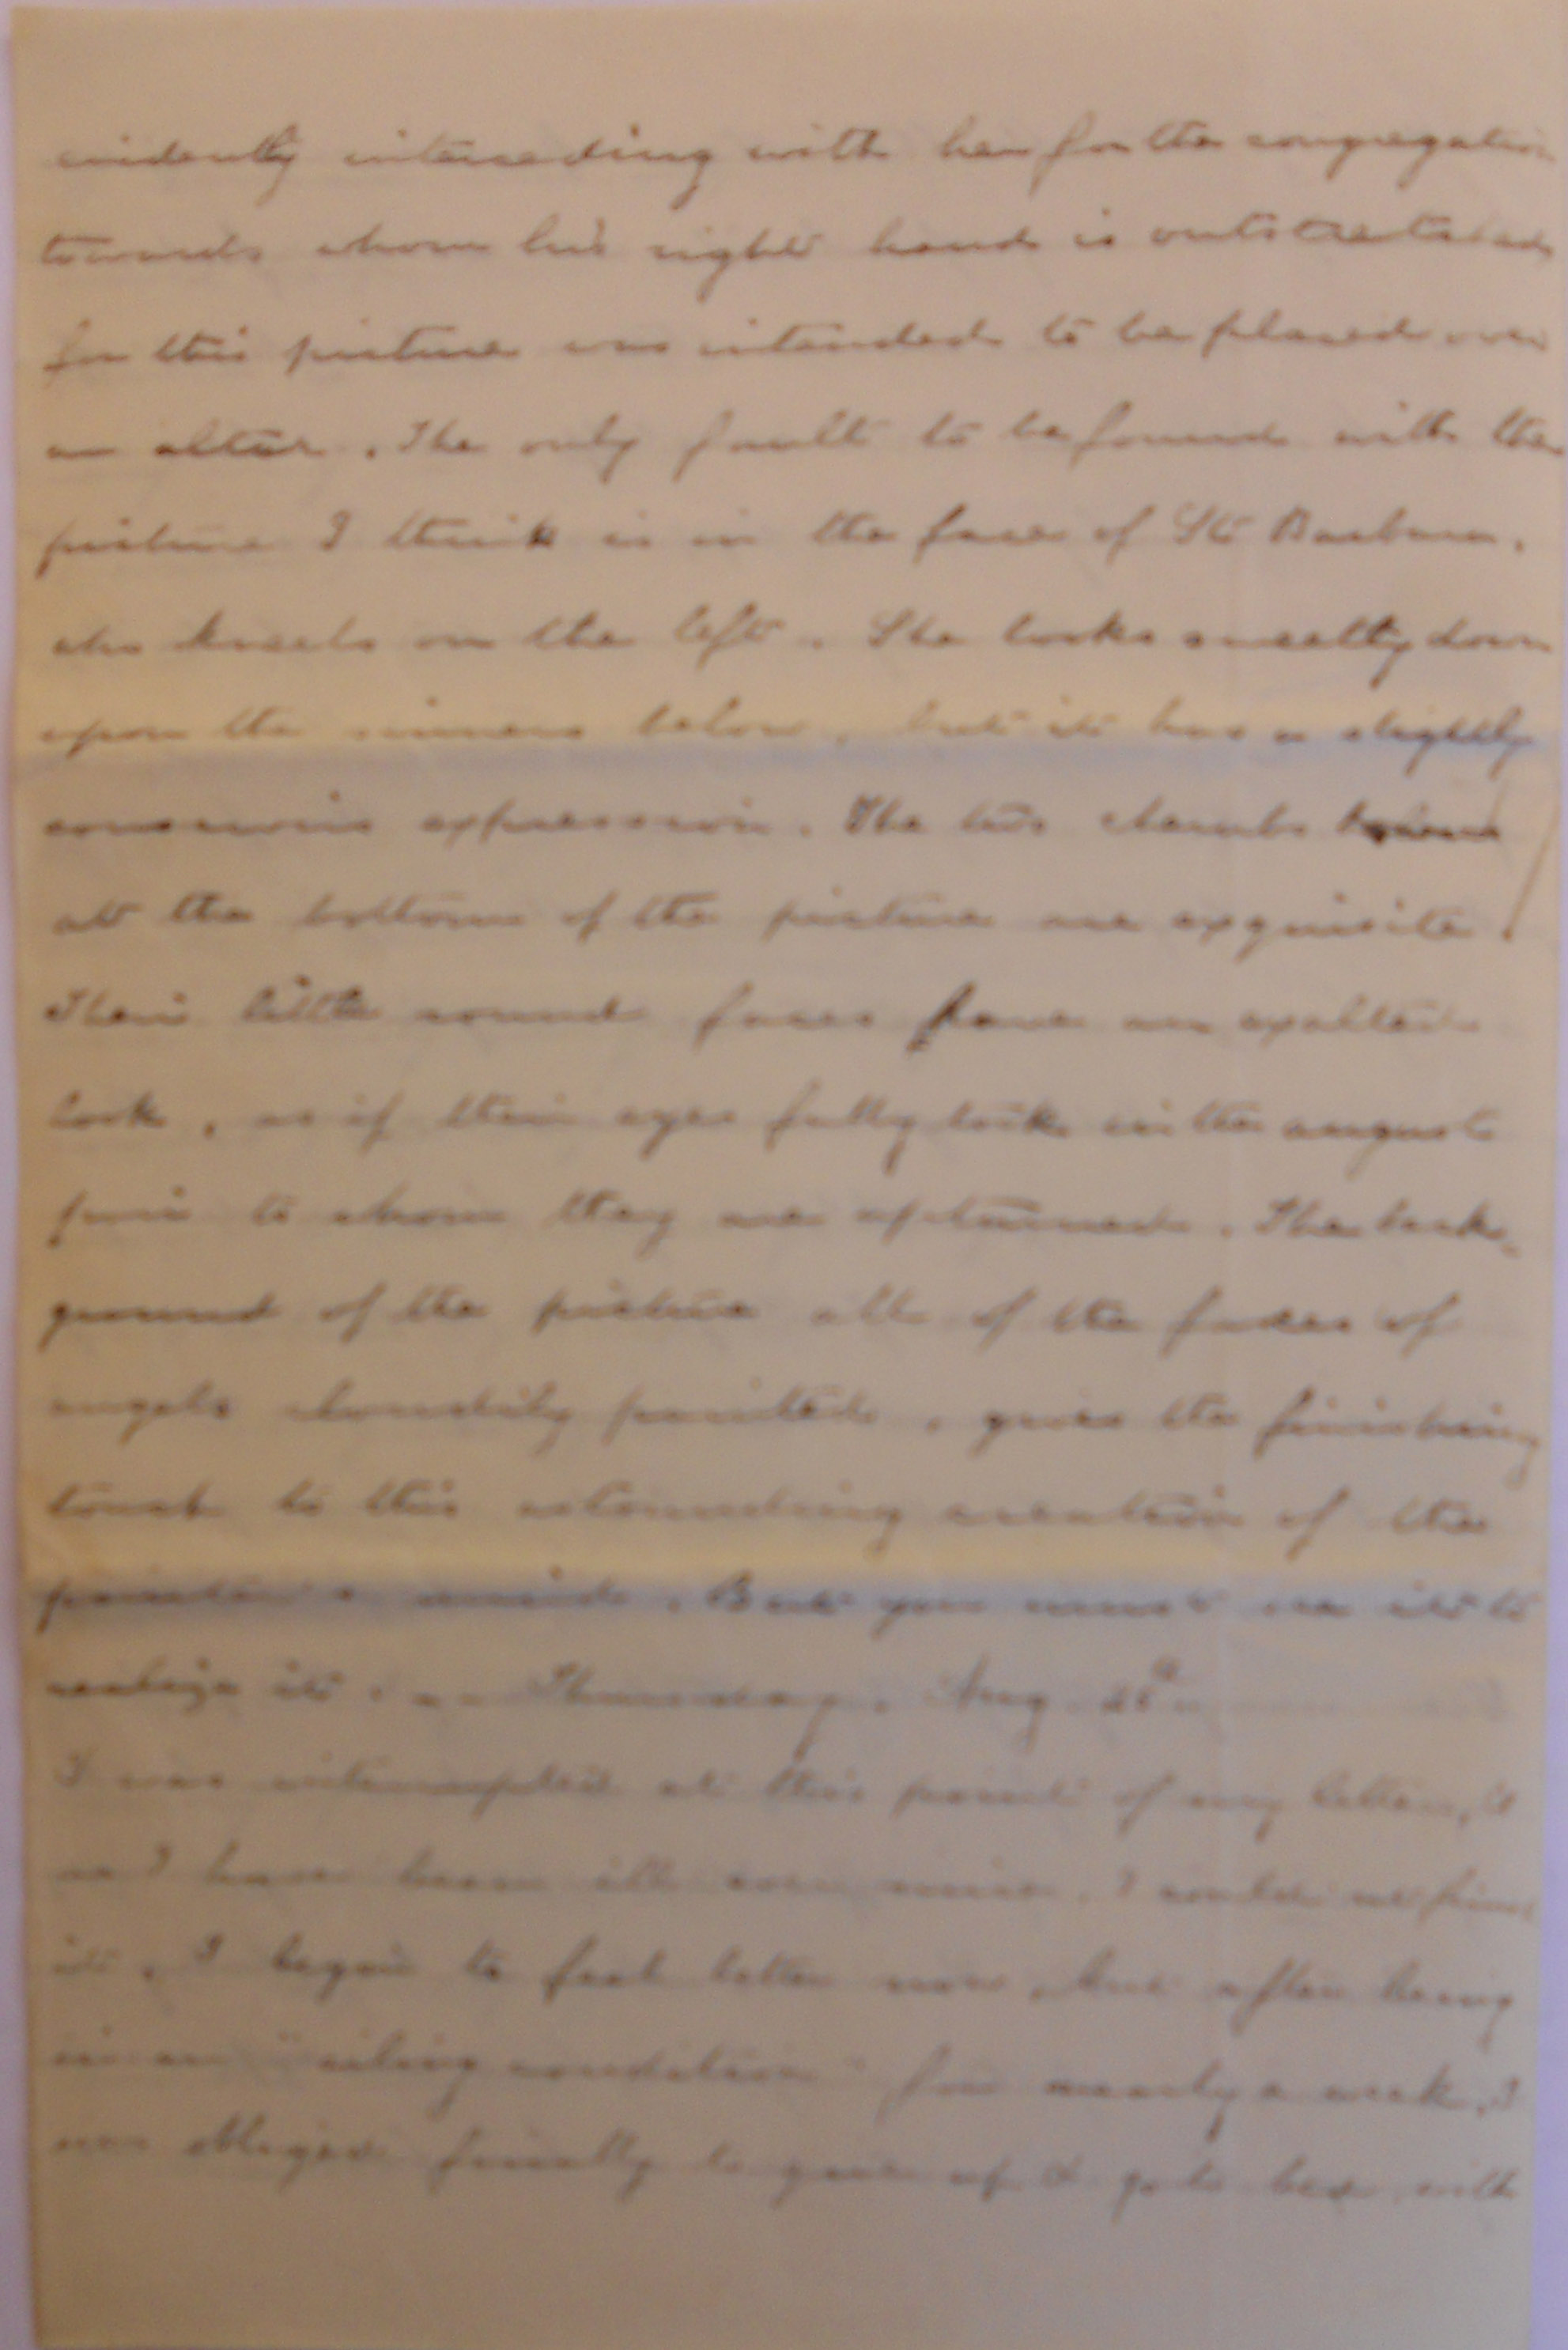 evidently interceding with her for the congregation
towards whom his right hand is outstretched
for this picture was intended to be placed over
an altar. The only fault to be found with the
picture I think is in the face of St Barbara,
who kneels on the left. She looks sweetly down
upon the sinners below, but it has a slightly
conscious expression. The two cherubs
at the bottom of the picture are exquisite.
Their little round faces have an exalted
look, as if their eyes fully took in the august
pair to whom they are upturned. The back-
ground of the picture all of the faces of
angels cloudily painted, gives the finishing
touch to this astounding creation of the
painter's mind. But you must see it to
realize it. Thursday, Aug
I was interrupted at this point of my letter, &
as I have been ill ever since, I couldn't finish
it. I begin to feel better now, but after being
in an "ailing condition" for nearly a week, I
was obliged finally to give up & go to bed with